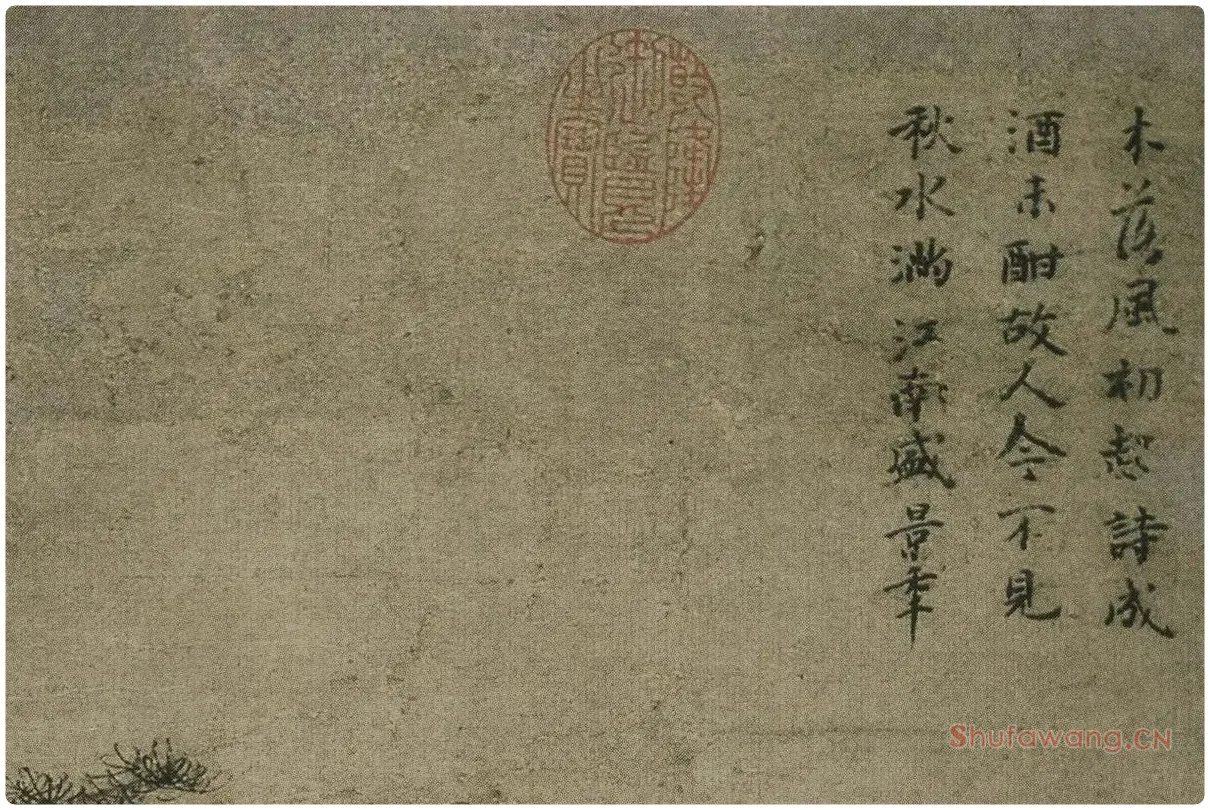 木落風初起詩成
酒未酣故人今不見
秋水滿江南盛景年
乾隆御覽之寶
Shufawang.CN